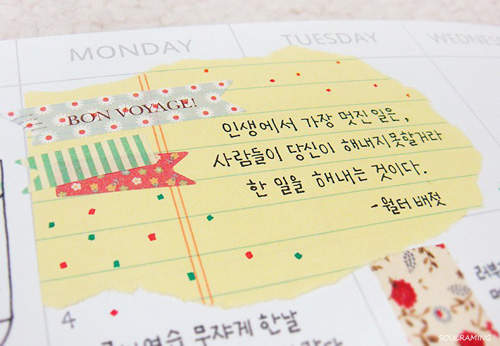 MONDAY
TUESDAY
WEDNES
BON VOYAGE!
인생에서 가장 멋진 일은,
사람들이 당신이 해내지 못할거라
한 일을 해내는 것이다.
-월터 배젓
4
무쟈게 한날
SOUGRAMING